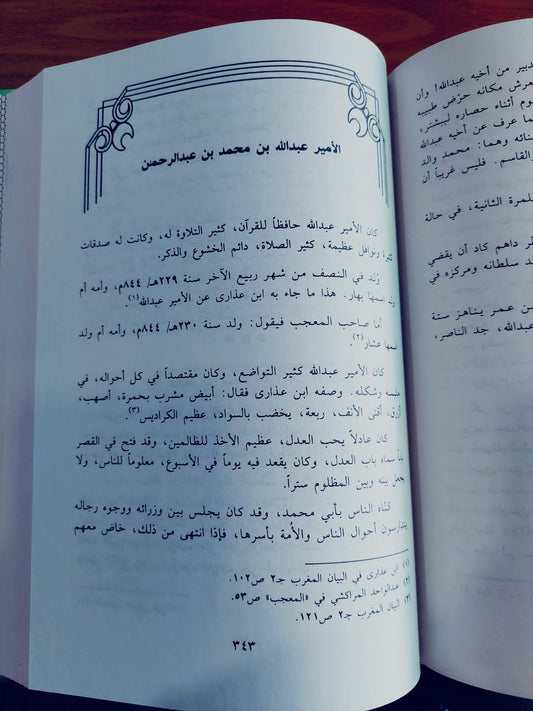 الأمير عبدالله بن محمد بن عبدالرحمن
كان الأمير عبدالله حافظاً للقرآن، كثير التلاوة له، وكانت له صدقات
كثيرة ونوافل عظيمة، كثير الصلاة، دائم الخشوع والذكر.
ولد في النصف من شهر ربيع الآخر سنة ٢٢٩هـ/ ٨٤٤م، وأمه أم
ولد اسمها بهار. هذا ما جاء به ابن عذارى عن الأمير عبدالله(١).
أما صاحب المعجب فيقول: ولد سنة ٢٣٠هـ/ ٨٤٤م، وأمه أم ولد
اسمها عشار(٢).
كان الأمير عبدالله كثير التواضع، وكان مقتصداً في كل أحواله، في
ملبسه وشكله. وصفه ابن عذارى فقال: أبيض مشرب بحمرة، أصهب،
أزرق، أقنى الأنف، ربعة، يخضب بالسواد، عظيم الكراديس(٣).
كان عادلاً يحب العدل، عظيم الأخذ للظالمين، وقد فتح في القصر
باباً سماه باب العدل، وكان يقعد فيه يوماً في الأسبوع، معلوماً للناس، ولا
يجعل بينه وبين المظلوم ستراً.
كنّاه الناس بأبي محمد، وقد كان يجلس بين وزرائه ووجوه رجاله
يتدارسون أحوال الناس والأمة بأسرها، فإذا انتهى من ذلك، خاض معهم
(١) ابن عذارى في البيان المغرب جـ٢ ص١٠٢.
(٢) عبدالواحد المراكشي في «المعجب» ص٥٣.
(٣) البيان المغرب جـ٢ ص١٢١.
٣٤٣
دبير من أخيه عبدالله! وأن
عرش مكانه حرّض طبيبه
وم أثناء حصاره لبيشتر،
ما عرف عن أخيه عبدالله
نائه وهما: محمد والد
القاسم. فليس غريباً أن
للمرة الثانية، في حالة
ظر داهم كاد أن يقضي
د سلطانه ومركزه في
عن عمر يناهز ستة
عبدالله، جد الناصر،